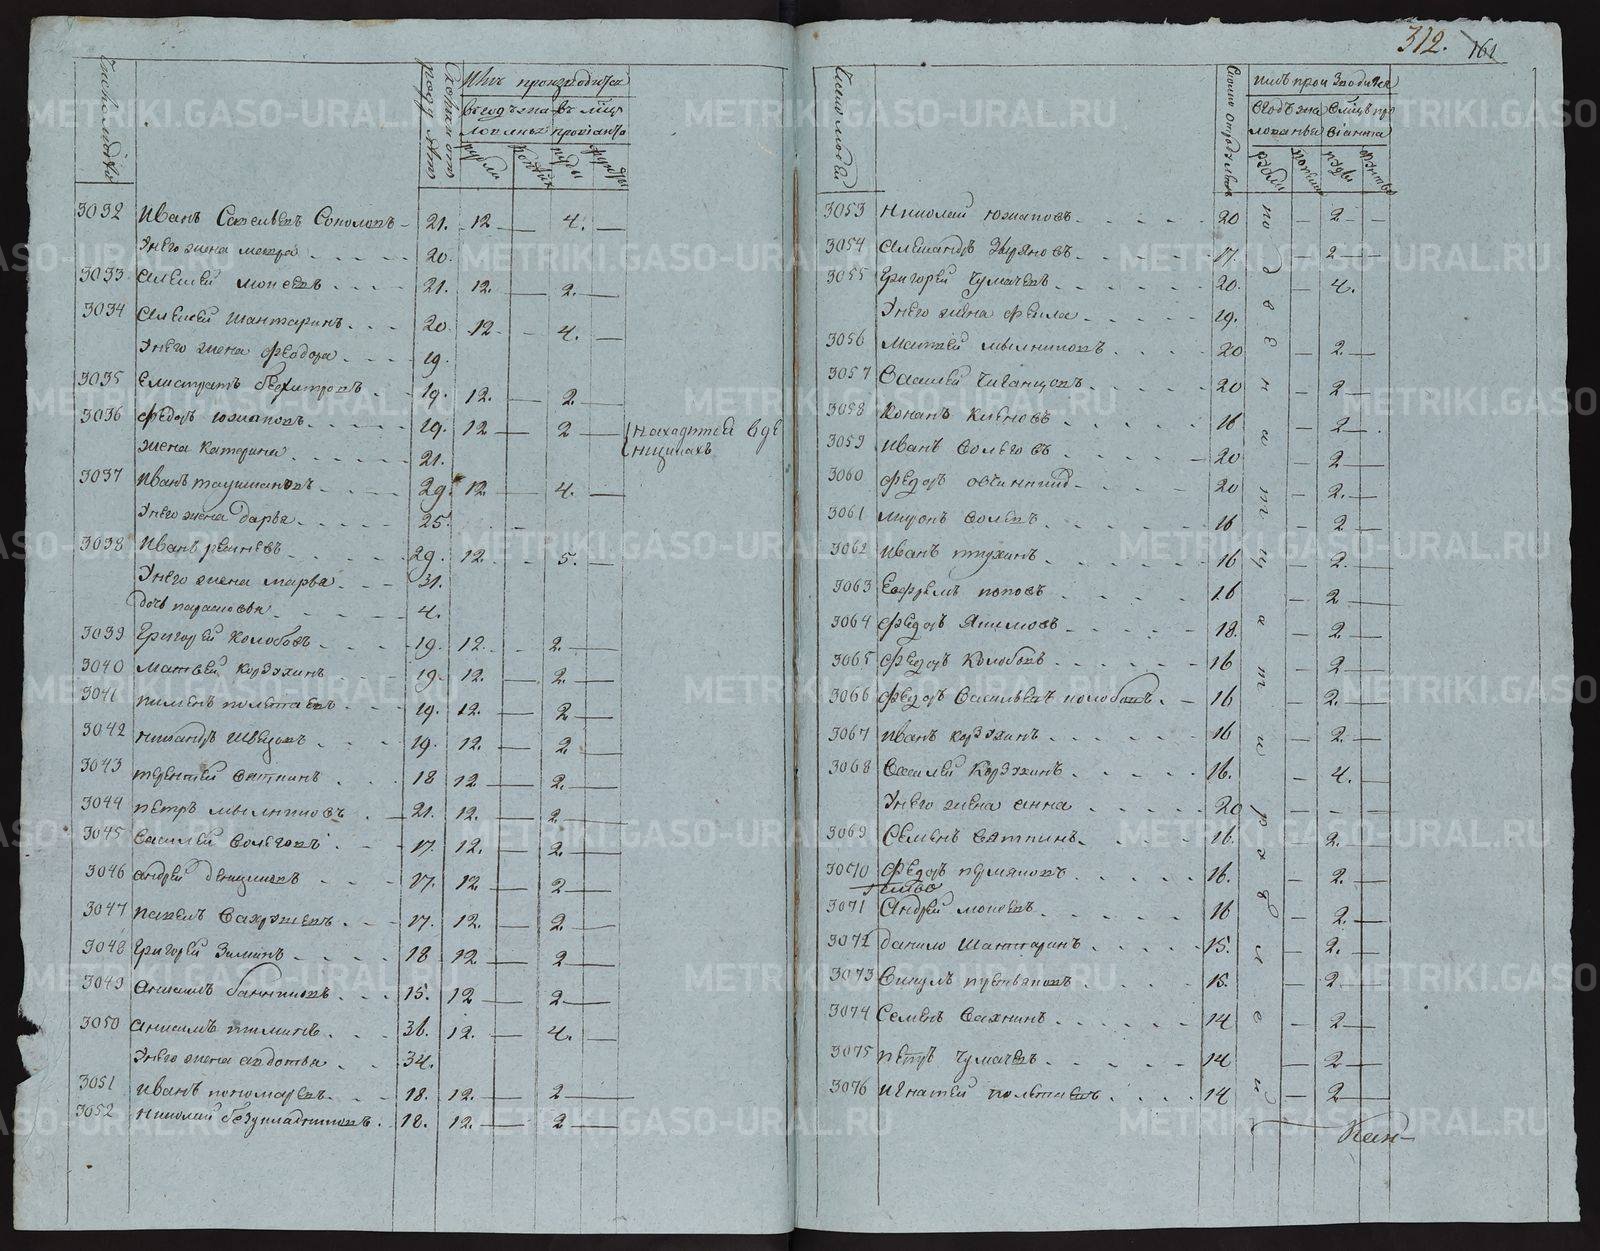 312. 161
Число людей
Сколько от роду лет
Имъ производится
въ годъ жалованья
въ мѣц провіанта
рубли
копѣйк
пуды
фунты
3032 Иванъ Савельевъ Соколовъ 21. 12 — 4. —
У него жена 20.
3033 Алексей Мокеевъ 21. 12. — 2. —
3034 Алексей Шантаринъ 20 12 — 4. —
У него жена Федора 19.
3035 Елистратъ 19. 12. — 2 —
3036 Федоръ Южаковъ 19. 12 — 2 — находится в де
жена Катерина 21. нщикахъ
3037 Иванъ 29. 12. — 4. —
У него жена Дарья 25.
3038 Иванъ 29. 12. 5. —
У него жена Марва 31.
дочь Парасковья 4.
3039 Григорей Колобовъ 19. 12. 2. —
3040 Матвей Корзухинъ 19. 12. — 2. —
3041 Пименъ Полетаевъ 19. 12. — 2 —
3042 Никандръ Швецовъ 19. 12. — 2. —
3043 Терентей Вяткинъ 18 12 — 2. —
3044 Петръ Мыльниковъ 21. 12. — 2 —
3045 Василей Волеговъ 17. 12. — 2. —
3046 Андрей Денщиковъ 17. 12. — 2 —
3047 Павелъ Вахрушевъ 17. 12. — 2 —
3048 Григорей Зыминъ 18 12. — 2 —
3049 15. 12 — 2 —
3050 Анисимъ 36. 12. — 4. —
У него жена Авдотья 34.
3051 Иванъ Пономаревъ 18. 12. — 2 —
3052 Николай Безукладниковъ 18. 12. — 2 —
Число людей
Сколько отроду лѣтъ
имъ производится
вгодъ жалованья
вмѣцъ провіанта
рубли
копѣйки
пуды
фунты
3053 Николай Южаковъ 20 — 2 —
3054 Александръ Зыряновъ 17. — 2 —
3055 Григорей Чумачевъ 20. — 4.
У него жена Фекла 19.
3056 Матвей Мыльниковъ 20 — 2 —
3057 Василей Чиганцовъ 20 — 2 —
3058 Конанъ 16 — 2 —
3059 Иванъ Волеговъ 20 — 2 —
3060 Федоръ 20 — 2. —
3061 16 — 2 —
3062 Иванъ Птухинъ 16 — 2 —
3063 Ефремъ Поповъ 16 — 2 —
3064 Федоръ Якимовъ 18. — 2. —
3065 Федоръ Колобовъ 16 — 2 —
3066 Федоръ Васильевъ Колобовъ 16 — 2. —
3067 Иванъ Корзухинъ 16 — 2. —
3068 Василей Корзухинъ 16. — 4. —
У него жена Анна 20 — — —
3069 Семенъ Вяткинъ 16. — 2. —
3070 Федоръ Пермяковъ 16. — 2. —
3071 Андрей Мокеевъ 16 — 2. —
3072 Данило Шантаринъ 15. — 2. —
3073 Викулъ 15. — 2 —
3074 Семенъ Вахнинъ 14 — 2 —
3075 Петръ Чумачевъ 14 — 2 —
3076 Игнатей Полетаевъ 14 — 2 —
по двенатцати рублей
METRIKI.GASO-URAL.RU